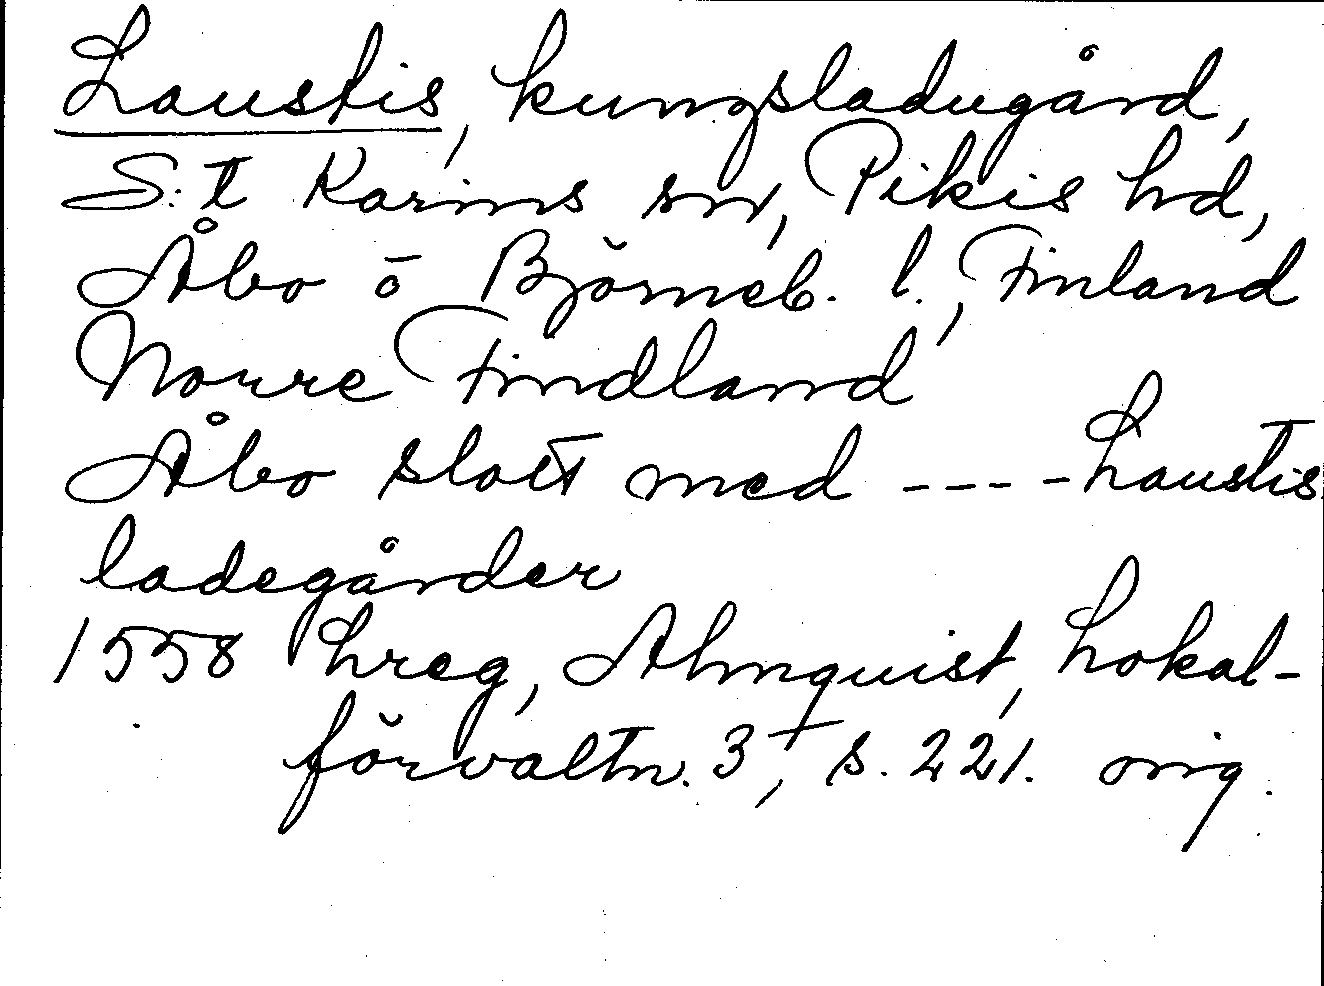 Laustis, kungsladugård,
S:t Karins sn, Pikis hd,
Åbo o Björneb. l., Finland
Norre Findland
Åbo slott med ---- Laustis
ladegårder
1558 Lreg, Almquist, Lokal-
förvaltn. 3, s. 221. orig.